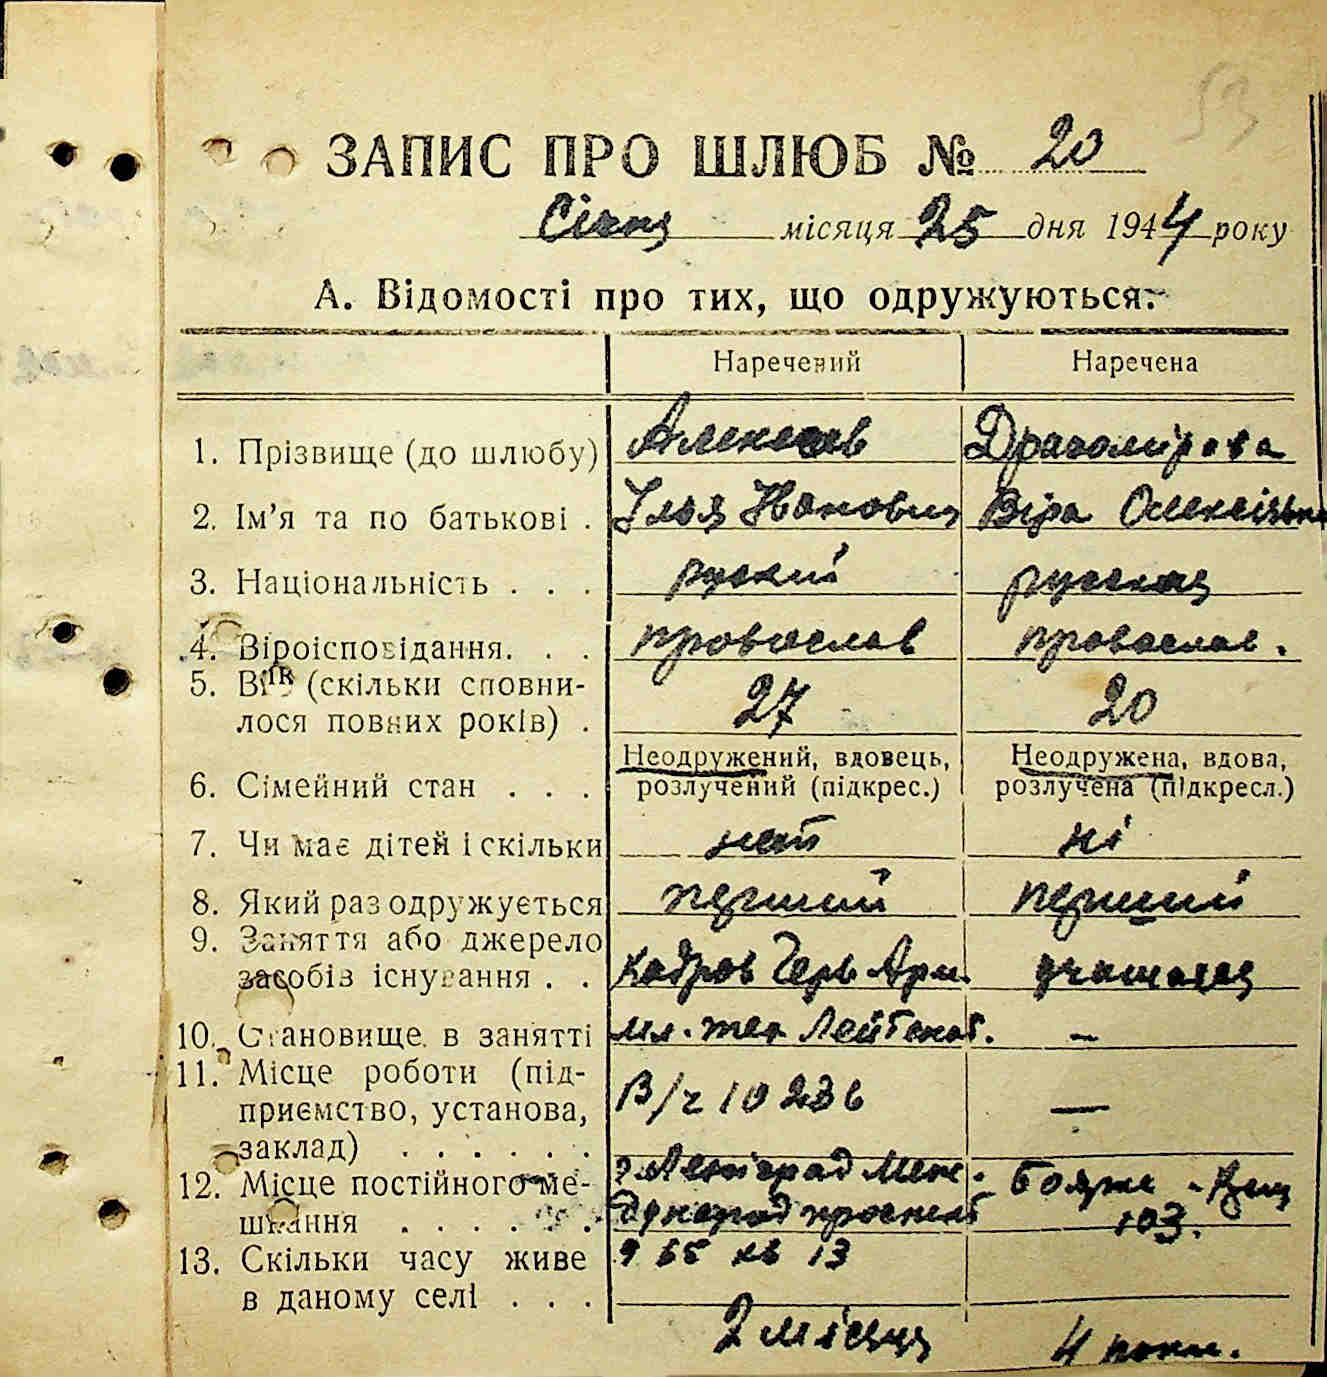 53
ЗАПИС ПРО ШЛЮБ № 20
Січня місяця 25 дня 1944 року
А. Відомості про тих, що одружуються:
Наречений Наречена
1. Прізвище (до шлюбу) Алексеев Драгомірова
2. Ім'я та по батькові . Ілья Іванович Віра Олексіївна
3. Національність . . . руский русская
4. Віроісповідання. . . православ православ.
5. Вік (скільки сповни-
лося повних років) . 27 20
Неодружений, вдовець, Неодружена, вдова,
6. Сімейний стан . . . розлучений (підкрес.) розлучена (підкресл.)
7. Чи має дітей і скільки нет ні
8. Який раз одружується перший перший
9. Заняття або джерело
засобів існування . . Кадров Черв Арм. учитель
10. Становище в занятті мл. тех Лейтенат. –
11. Місце роботи (під-
приємство, установа, В/ч 10236 —
заклад) . . . . . .
12. Місце постійного ме- г Ленінград Боярка
шкання . . . . . . проспект 103.
13. Скільки часу живе 65 кв 13
в даному селі . . .
2 місяця 4 роки.